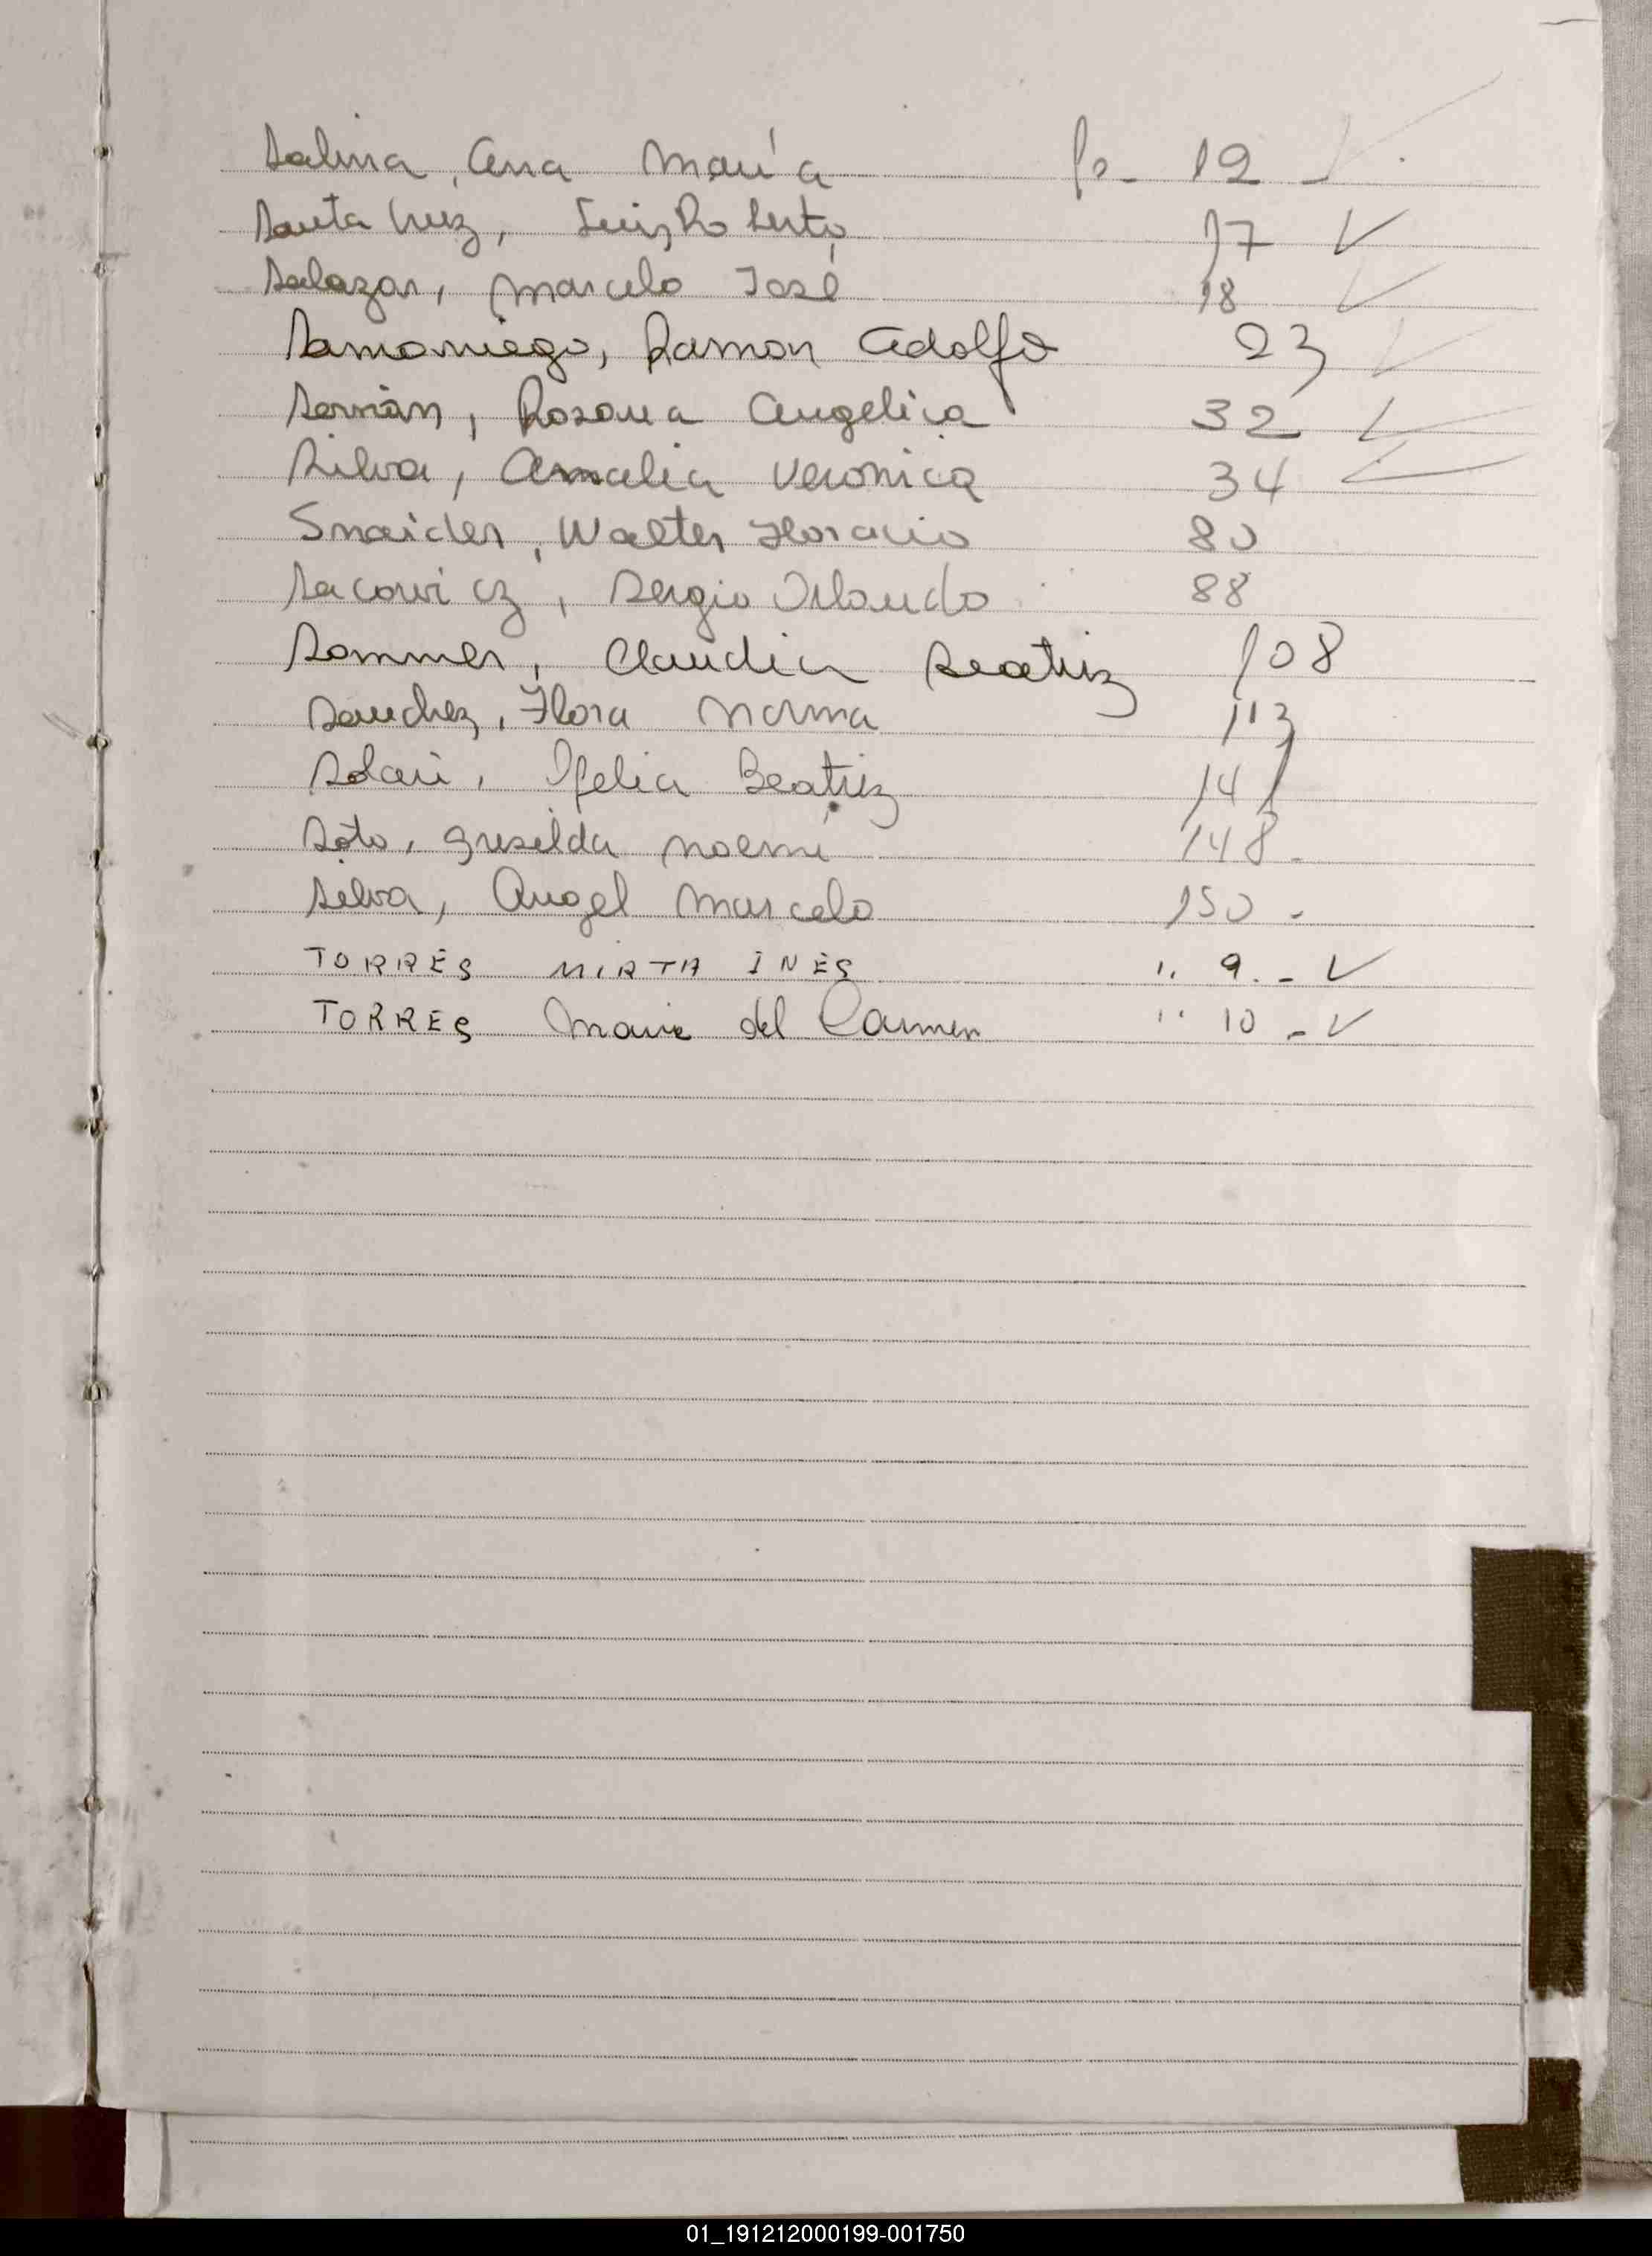 Salina, Ana María fo- 12 -
Santa Cruz, Luis Roberto 17 ✓
Salazar, Marcelo José 18 ✓
Samaniego, Ramon Adolfo 23 ✓
Servián, Rosana Angelica 32 ✓
Silva, Amalia Veronica 34 ✓
Snaider, Walter Horacio 80
Sacowicz, Sergio Orlando 88
Sommer, Claudia Beatriz 108
Sanchez, Flora Norma 113
Solari, Ofelia Beatriz 141
Soto, Griselda Noemi 148 -
Silva, Angel Marcelo 150 -
TORRES MIRTA INÉS " 9.- ✓
TORRES Maria del Carmen " 10 - ✓
01_191212000199-001750